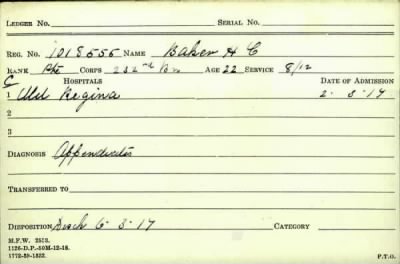 LEDGER NO. SERIAL NO.
REG. NO. 1018555 NAME Baker H C
RANK Pte CORPS 232nd Bn AGE 22 SERVICE 8/12
C HOSPITALS DATE OF ADMISSION
1 Regina 2-3-17
2
3
DIAGNOSIS Appendicitis
TRANSFERRED TO
DISPOSITION Disch 6-3-17 CATEGORY
M.F.W. 2553.
1126-D.P.-50M-12-18.
1772-39-1832. P.T.O.